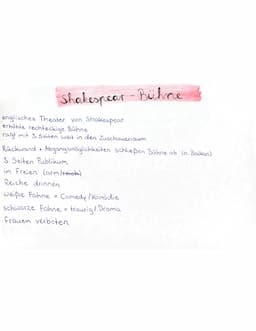 Shakespear-Bühne
englisches Theater von Shakespear
erhöhte rechteckige Bühne
ragt mit 3 Seiten weit in den Zuschauerraum
Rückwand + Abgangsmöglichkeiten schließen Bühne ab (n. Balkon)
3 Seiten Publikum
im Freien (arm/reich)
Reiche drinnen
weiße Fahne = Comedy/Komödie
schwarze Fahne = traurig/Drama
Frauen verboten